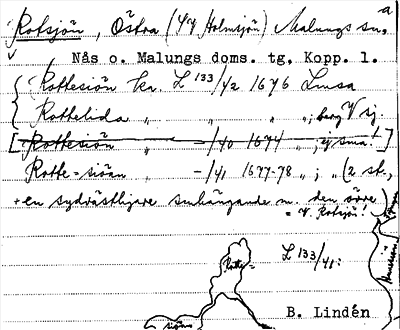 a
Rotsjön, Östra (4/4 Holmsjön) Malungs sn.
Nås o. Malungs doms. tg, Kopp. l.
Rottesiön kr. L 133/42 1676 Limsa
Rottelida " " " " ; berg V sj.
[Rottesiön " -/40 1674 " ; ej sma!]
Rotte=siöän " -/41 1677-78 " ; " (2 st.,
+ en sydvästligare sammanhängande m. den övre
= V. Rotsjön!
L 133/41:
Rotte=
siöän
B. Lindén